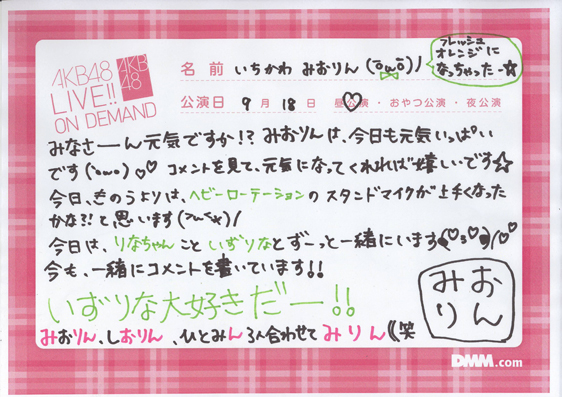 AKB48
LIVE!!
ON DEMAND
AKB
48
名前 いちかわ みおりん (ōωō)ノ
フレッシュ
オレンジに
なっちゃったー☆
公演日 9月18日 昼公演・おやつ公演・夜公演
みなさーん元気ですか!? みおりんは、今日も元気いっぱい
です(`・ω・´)ゞ♡ コメントを見て、元気になってくれれば嬉しいです☆
今日、きのうよりは、ヘビーローテーションのスタンドマイクが上手くなった
かな?!と思います
今日は、りなちゃんこといずりなとずーっと一緒にいます
今も、一緒にコメントを書いています!!
いずりな大好きだー!!
みおりん、しおりん、ひとみん3人合わせてみりん((笑
みおりん
DMM.com